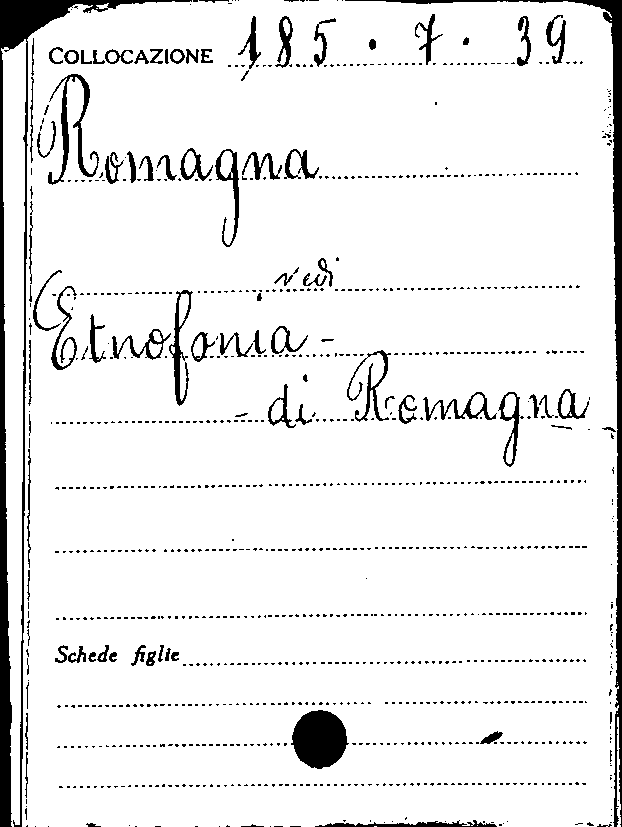 COLLOCAZIONE 185 . 7 . 39
Romagna
vedi
Etnofonia -
- di Romagna
Schede figlie